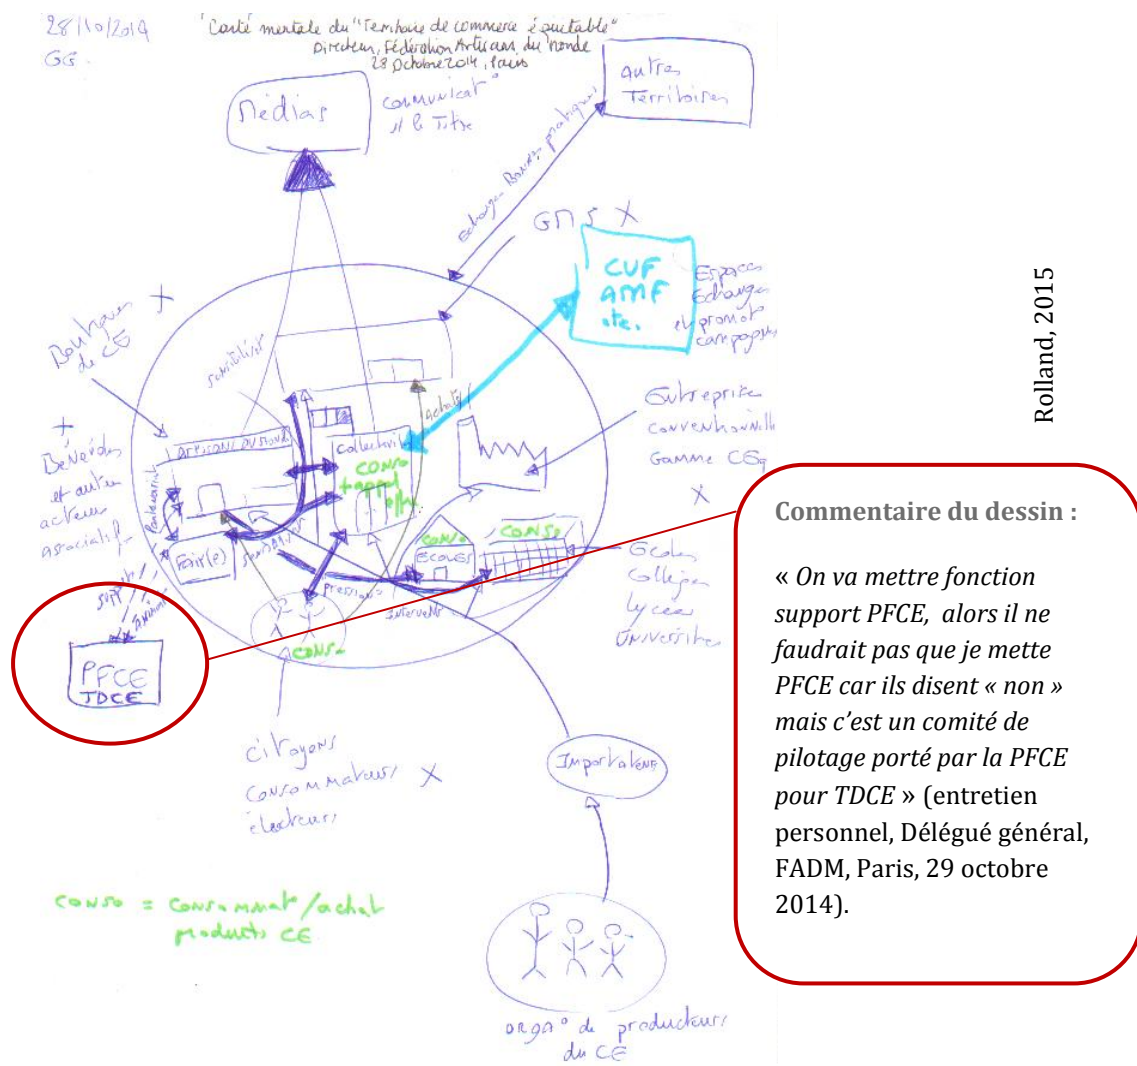 28/10/2014
GG
"Carte mentale du "Territoire de commerce équitable"
Directeur, Fédération Artisans du monde
28 Octobre 2014, Paris
Médias
communicat°
s/ le Titre
Autres
Territoires
Echanges Bonnes pratiques
GMS X
CUF
AMF
etc.
Espaces
Echanges
et promot°
campagnes
Boutiques X
de CE
X
Bénévoles
et autres
acteurs
associatifs
ARTISANS DU MONDE
Collectivité
CONSO
+ appel
achats
Entreprise
conventionnelle
Gamme CEq
X
Partenariat
Fair(e)
CONSO
ECOLES
CONSO
Ecoles
Collèges
Lycées
Universités
pression°
CONSO
support
PFCE
TDCE
citoyens
consommateurs X
électeurs
Importateurs
CONSO = consommat°/achat
products CE
orga° de producteurs
du CE
Rolland, 2015
Commentaire du dessin :
« On va mettre fonction
support PFCE, alors il ne
faudrait pas que je mette
PFCE car ils disent « non »
mais c'est un comité de
pilotage porté par la PFCE
pour TDCE » (entretien
personnel, Délégué général,
FADM, Paris, 29 octobre
2014).